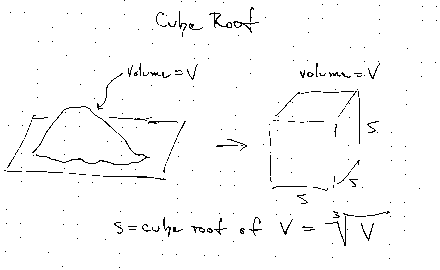 Cube Root
volume = V
volume = V
S
S
S
S = cube root of V = ∛V